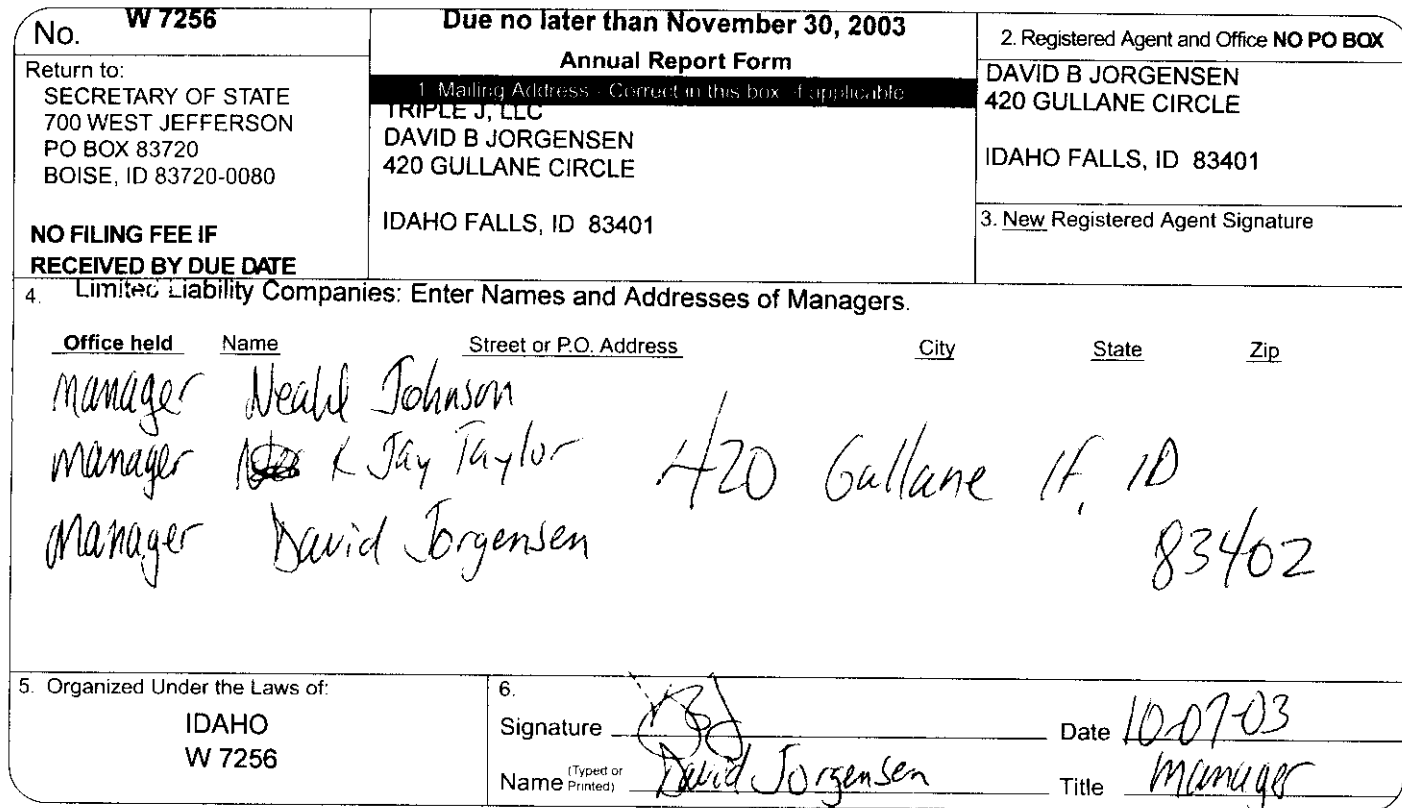 No. W 7256
Return to:
SECRETARY OF STATE
700 WEST JEFFERSON
PO BOX 83720
BOISE, ID 83720-0080
NO FILING FEE IF
RECEIVED BY DUE DATE
Due no later than November 30, 2003
Annual Report Form
1. Mailing Address - Correct in this box if applicable
TRIPLE J, LLC
DAVID B JORGENSEN
420 GULLANE CIRCLE
IDAHO FALLS, ID 83401
2. Registered Agent and Office NO PO BOX
DAVID B JORGENSEN
420 GULLANE CIRCLE
IDAHO FALLS, ID 83401
3. New Registered Agent Signature
4. Limited Liability Companies: Enter Names and Addresses of Managers.
Office held Name Street or P.O. Address City State Zip
Manager Johnson
Manager K Jay Taylor 420 Gullane IF, ID
Manager David Jorgensen 83402
5. Organized Under the Laws of:
IDAHO
W 7256
6.
Signature Date 10-07-03
Name (Typed or Printed) David Jorgensen Title Manager